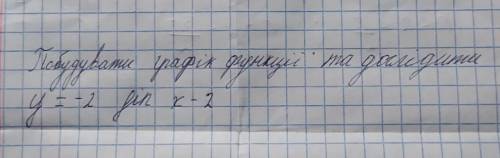 Побудувати графік функції та дослідити
y = -2 sin x - 2